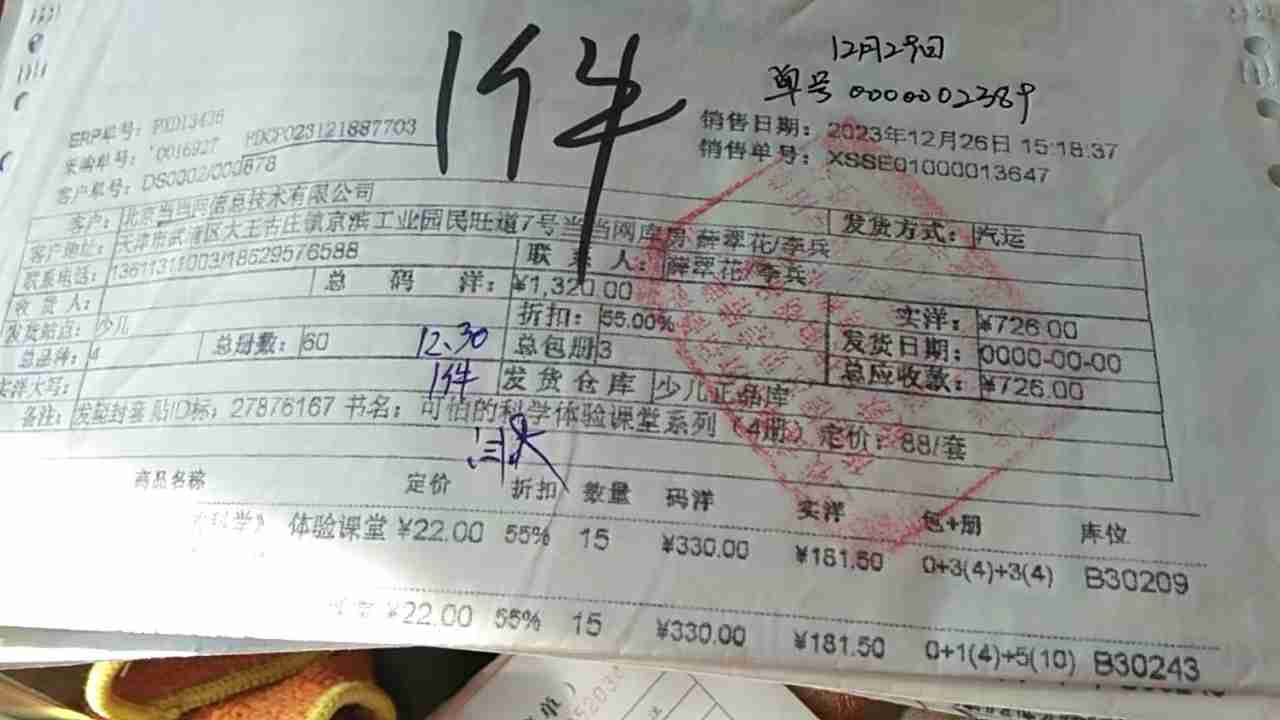 1件
12月29回
单号 0000002389
ERP单号: PXD13436
销售日期: 2023年12月26日 15:18:37
采购单号: 0016927 MDCP023121887703
销售单号: XSSE01000013647
客户单号: DS0002/000878
客户: 北京当当网信息技术有限公司 发货方式: 汽运
客户地址: 天津市武清区大王古庄镇京滨工业园民旺道7号当当网库房 薛翠花/李兵
联系电话: 13611311003/18529576588 联系人: 薛翠花/李兵
收货人: 总码洋: ¥1,320.00 实洋: ¥726.00
发货站点: 少儿 折扣: 55.00% 发货日期: 0000-00-00
总品种: 4 总册数: 60 总包册 3 总应收款: ¥726.00
12.30
1件
实洋大写: 发货仓库 少儿正品库
备注: 贴ID标; 27876167 书名: 可怕的科学体验课堂系列 (4册) 定价: 88/套
商品名称 定价 折扣 数量 码洋 实洋 包+册 库位
科学》 体验课堂 ¥22.00 55% 15 ¥330.00 ¥181.50 0+3(4)+3(4) B30209
¥22.00 55% 15 ¥330.00 ¥181.50 0+1(4)+5(10) B30243